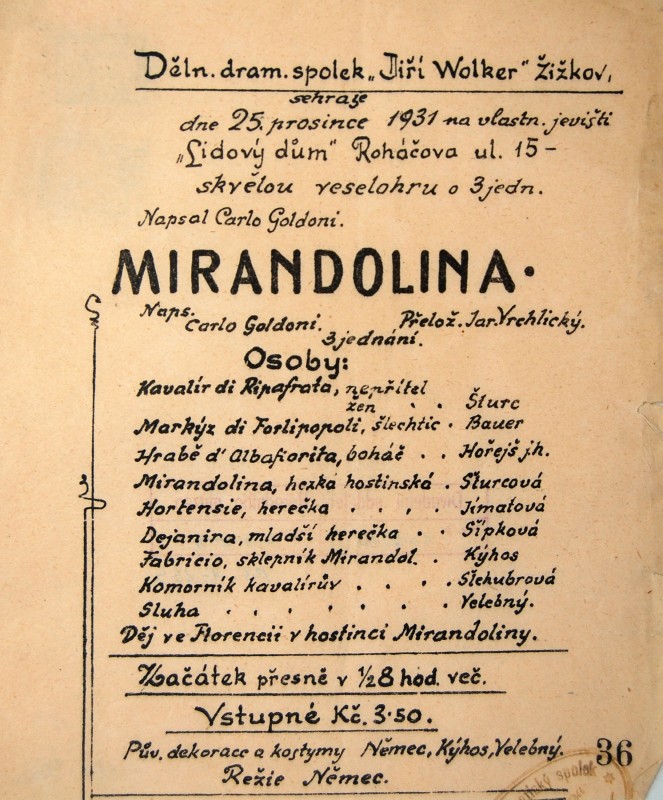 Děln. dram. spolek „Jiří Wolker" Žižkov,
sehraje
dne 25. prosince 1931 na vlastn. jevišti
„Lidový dům" Roháčova ul. 15 –
skvělou veselohru o 3 jedn.
Napsal Carlo Goldoni.
MIRANDOLINA.
Naps. Carlo Goldoni. Přelož. Jar. Vrchlický.
3 jednání.
Osoby:
Kavalír di Ripafrata, nepřítel
žen . . Šturc
Markýz di Forlipopoli, šlechtic . Bauer
Hrabě d'Albafiorita, boháč . . Hořejš j.h.
Mirandolina, hezká hostinská . Šturcová
Hortensie, herečka . . . . Jímatová
Dejanira, mladší herečka . . Šípková
Fabricio, sklepník Mirandol. . Kýhos
Komorník kavalírův . . . . Stehubrová
Sluha . . . . . . . Velebný.
Děj ve Florencii v hostinci Mirandoliny.
Začátek přesně v ½8 hod. več.
Vstupné Kč. 3·50.
Pův. dekorace a kostymy Němec, Kýhos, Velebný.
Režie Němec.
36
spolek